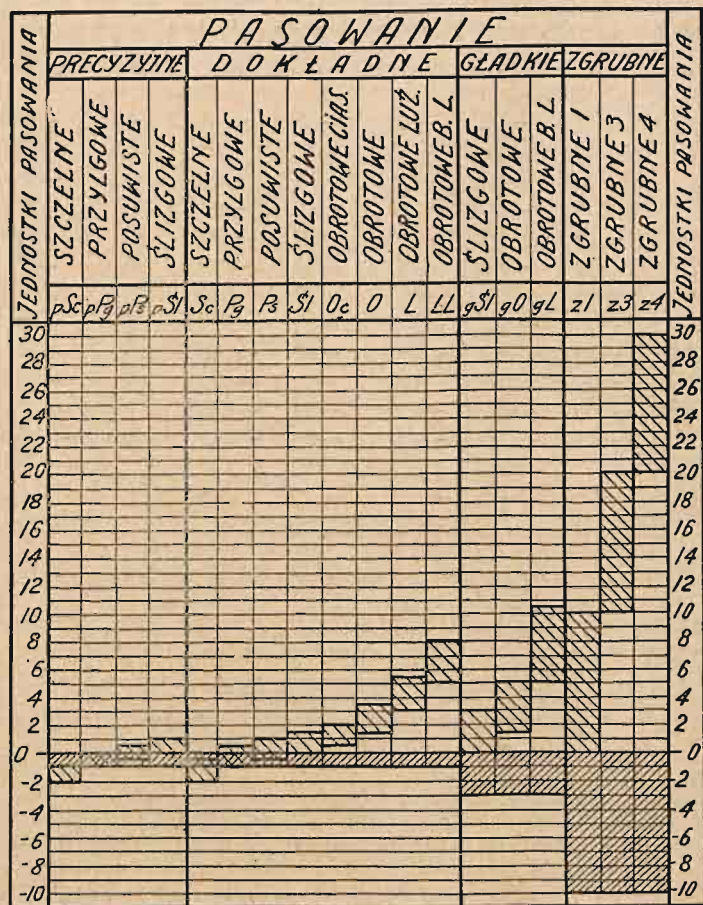 PASOWANIE
PRECYZYJNE DOKŁADNE GŁADKIE ZGRUBNE
JEDNOSTKI PASOWANIA
SZCZELNE
PRZYLGOWE
POSUWISTE
ŚLIZGOWE
SZCZELNE
PRZYLGOWE
POSUWISTE
ŚLIZGOWE
OBROTOWE CIAS.
OBROTOWE
OBROTOWE LUŹ.
OBROTOWE B. L.
ŚLIZGOWE
OBROTOWE
OBROTOWE B. L.
ZGRUBNE 1
ZGRUBNE 3
ZGRUBNE 4
JEDNOSTKI PASOWANIA
pSc pPg pPs pŚl Sc Pg Ps Śl Oc O L LL gŚl gO gL z1 z3 z4
30 30
28 28
26 26
24 24
22 22
20 20
18 18
16 16
14 14
12 12
10 10
8 8
6 6
4 4
2 2
0 0
-2 -2
-4 -4
-6 -6
-8 -8
-10 -10